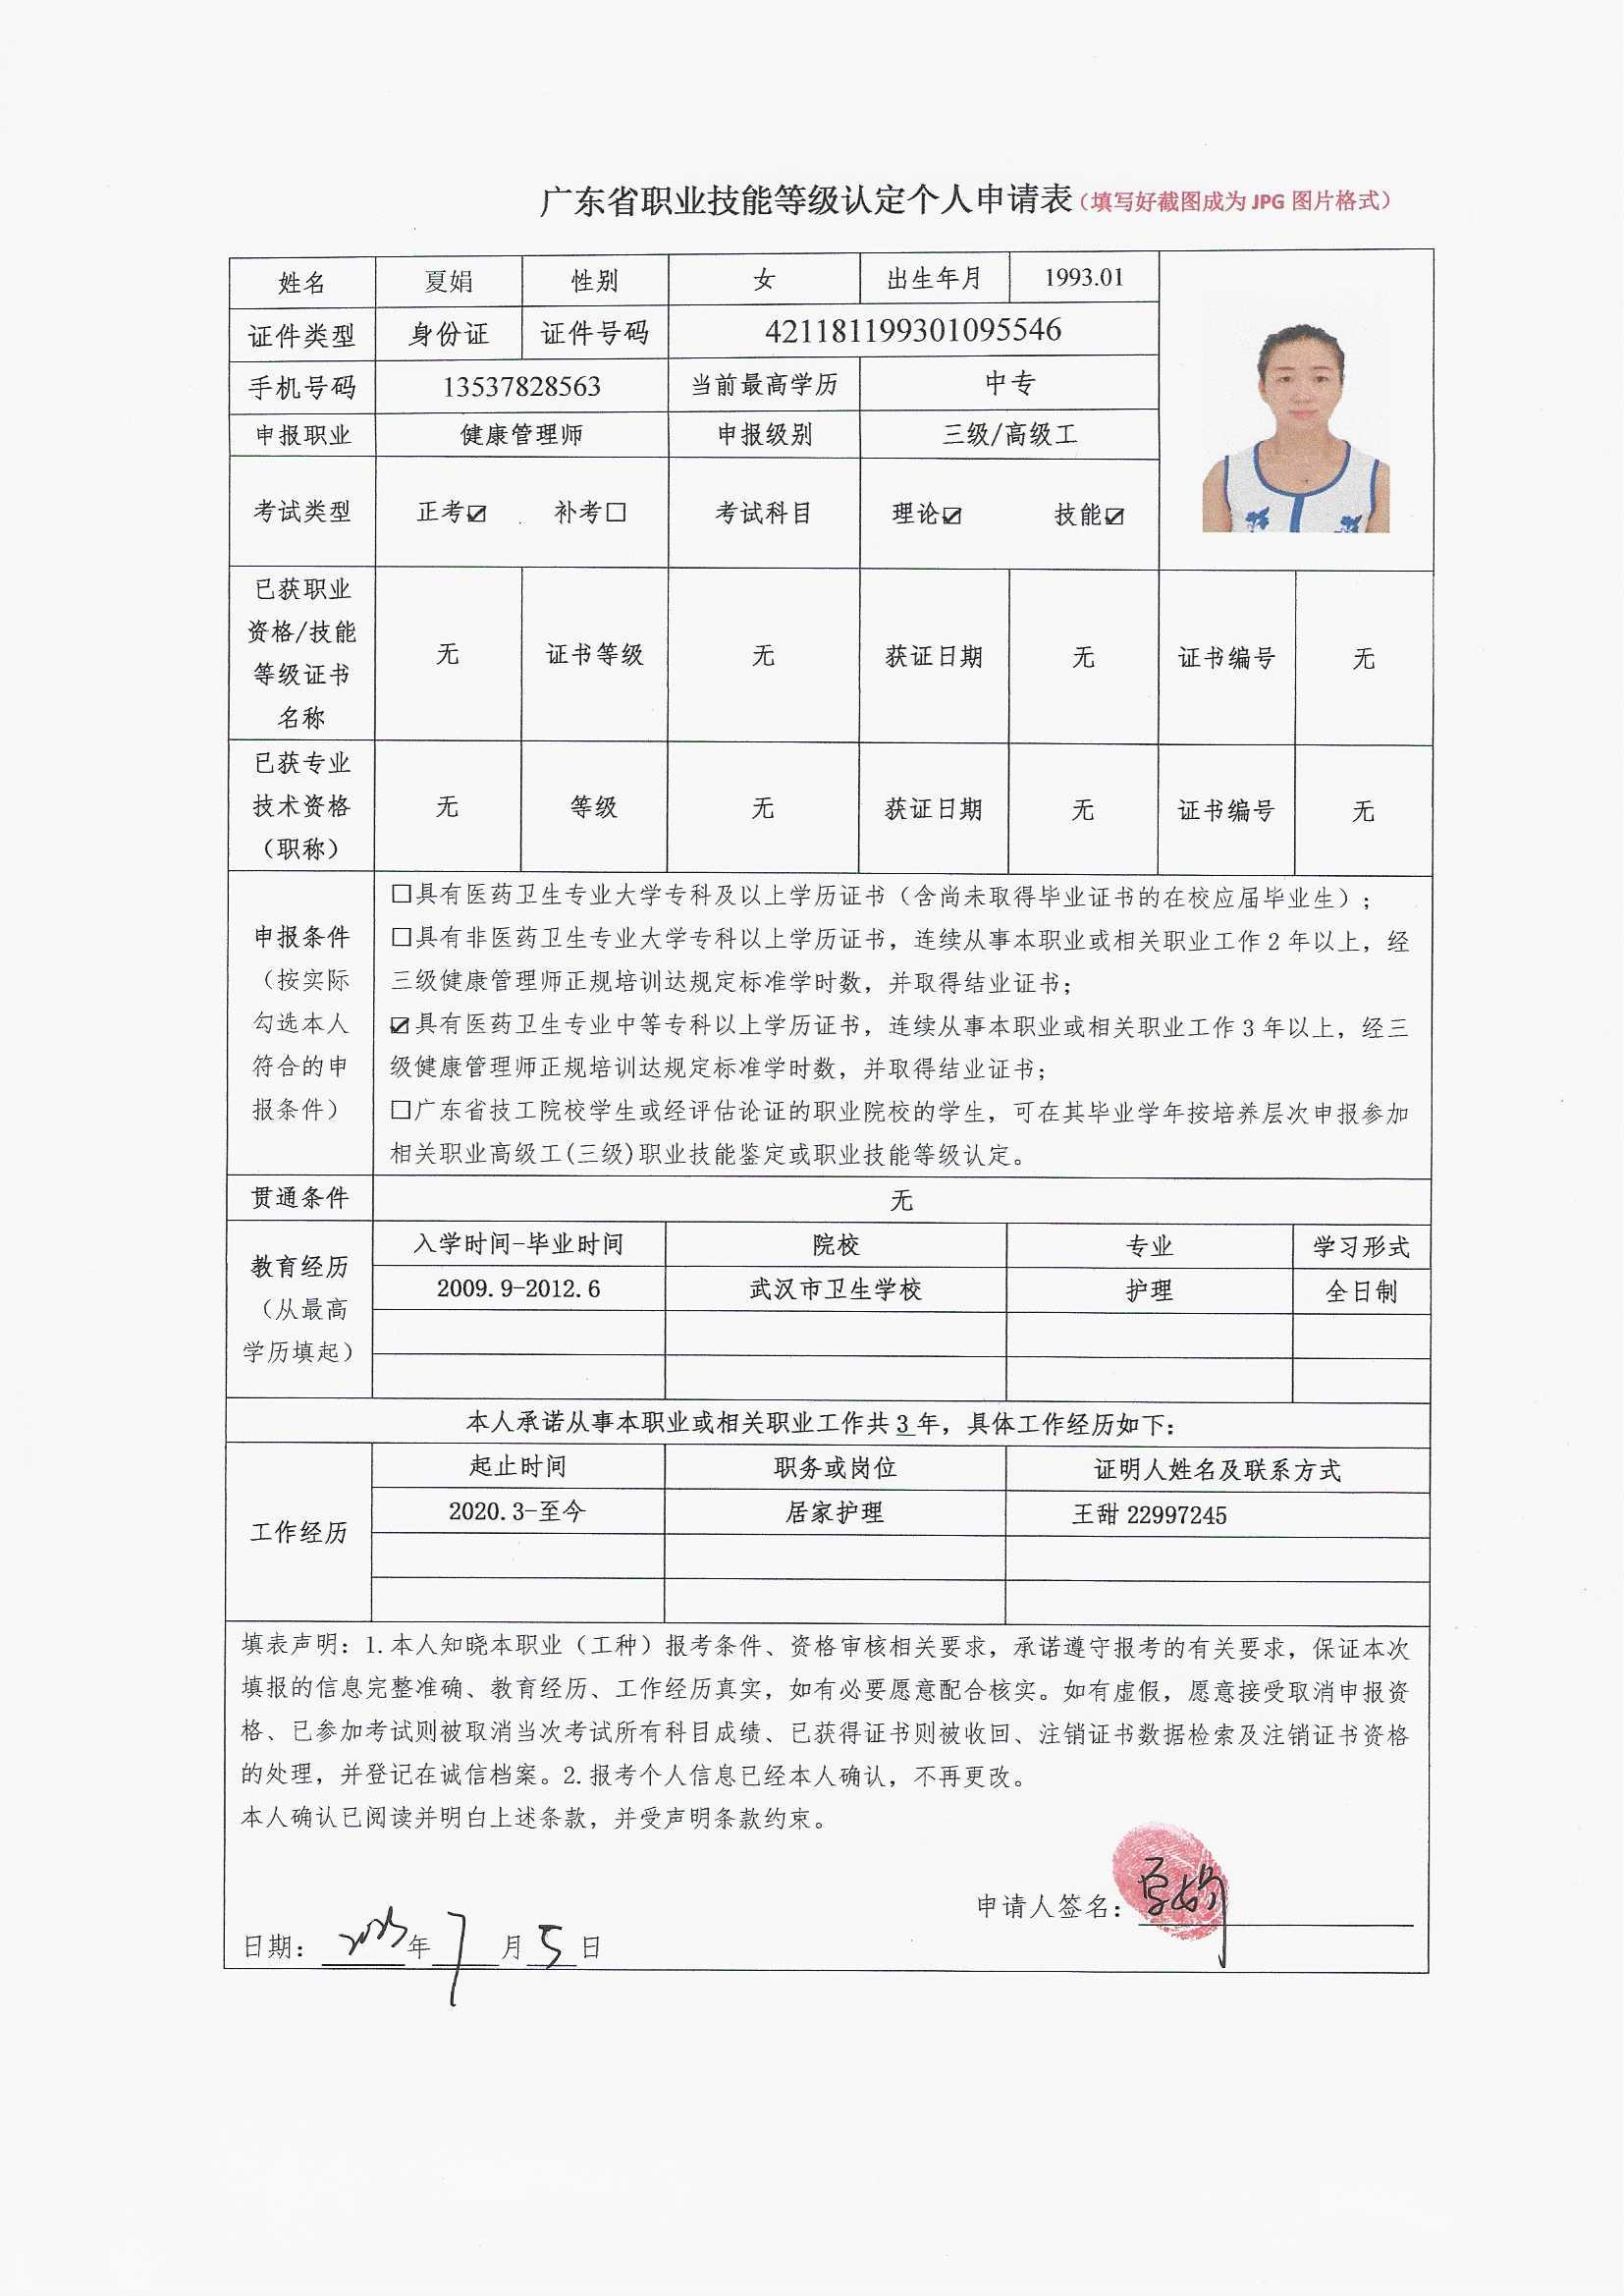 广东省职业技能等级认定个人申请表（填写好截图成为 JPG 图片格式）
姓名 夏娟 性别 女 出生年月 1993.01
证件类型 身份证 证件号码 421181199301095546
手机号码 13537828563 当前最高学历 中专
申报职业 健康管理师 申报级别 三级/高级工
考试类型 正考☑ 补考☐ 考试科目 理论☑ 技能☑
已获职业
资格/技能
等级证书
名称
无 证书等级 无 获证日期 无 证书编号 无
已获专业
技术资格
（职称）
无 等级 无 获证日期 无 证书编号 无
申报条件
（按实际
勾选本人
符合的申
报条件）
☐具有医药卫生专业大学专科及以上学历证书（含尚未取得毕业证书的在校应届毕业生）；
☐具有非医药卫生专业大学专科以上学历证书，连续从事本职业或相关职业工作 2 年以上，经
三级健康管理师正规培训达规定标准学时数，并取得结业证书；
☑具有医药卫生专业中等专科以上学历证书，连续从事本职业或相关职业工作 3 年以上，经三
级健康管理师正规培训达规定标准学时数，并取得结业证书；
☐广东省技工院校学生或经评估论证的职业院校的学生，可在其毕业学年按培养层次申报参加
相关职业高级工(三级)职业技能鉴定或职业技能等级认定。
贯通条件 无
教育经历
（从最高
学历填起）
入学时间-毕业时间 院校 专业 学习形式
2009.9-2012.6 武汉市卫生学校 护理 全日制
本人承诺从事本职业或相关职业工作共 3 年，具体工作经历如下：
工作经历
起止时间 职务或岗位 证明人姓名及联系方式
2020.3-至今 居家护理 王甜 22997245
填表声明：1.本人知晓本职业（工种）报考条件、资格审核相关要求，承诺遵守报考的有关要求，保证本次
填报的信息完整准确、教育经历、工作经历真实，如有必要愿意配合核实。如有虚假，愿意接受取消申报资
格、已参加考试则被取消当次考试所有科目成绩、已获得证书则被收回、注销证书数据检索及注销证书资格
的处理，并登记在诚信档案。2.报考个人信息已经本人确认，不再更改。
本人确认已阅读并明白上述条款，并受声明条款约束。
申请人签名：夏娟
日期： 2023 年 7 月 5 日